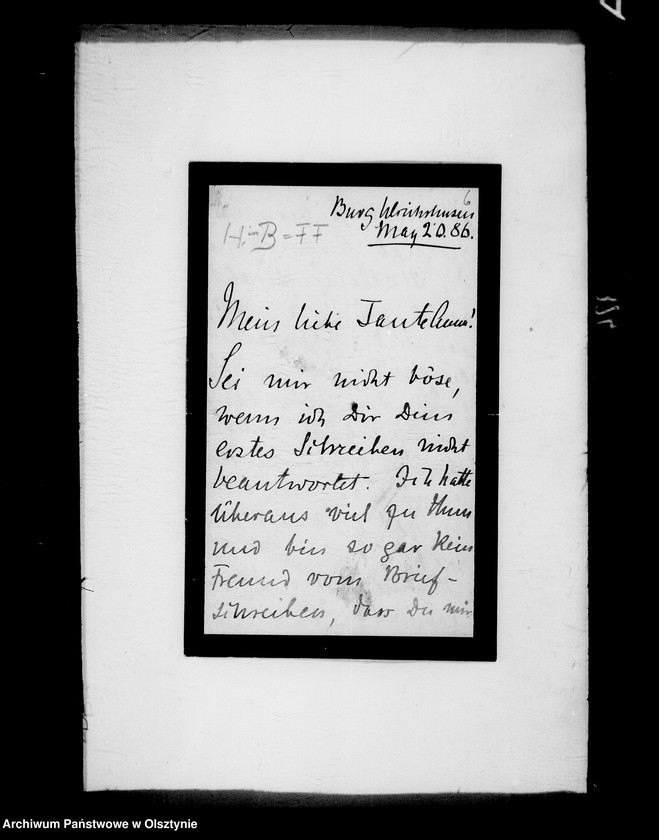 6
Burg Ulrichshusen
May 20. 86.
H. B = FF
Mein liebe Tante Anna!
Sei mir nicht böse,
wenn ich Dir Dein
erstes Schreiben nicht
beantwortet. Ich hatte
überaus viel zu thun
und bin so gar kein
Freund vom Brief-
schreiben, dass Du mir
324
Archiwum Państwowe w Olsztynie